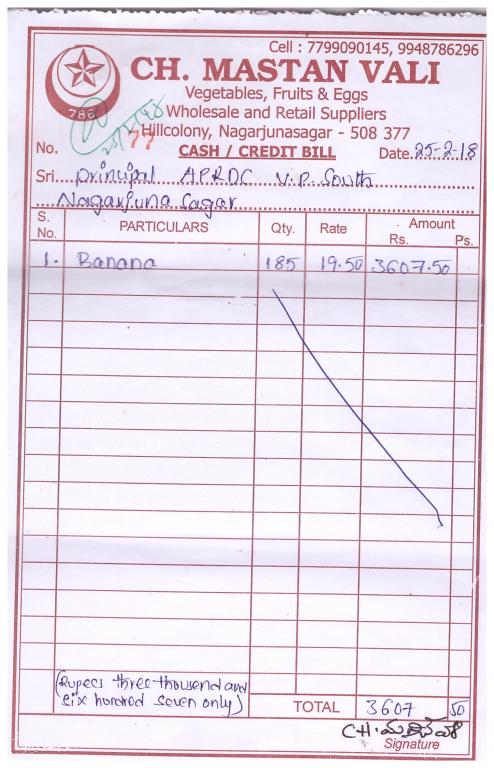 Cell : 7799090145, 9948786296
CH. MASTAN VALI
786
Vegetables, Fruits & Eggs
Wholesale and Retail Suppliers
Hillcolony, Nagarjunasagar - 508 377
No. 77 CASH / CREDIT BILL Date 25-2-18
Sri principal APRDC V.P. South
Nagarjuna Sagar
S. No. PARTICULARS Qty. Rate Amount Rs. Ps.
1. Banana 185 19.50 3607.50
(Rupees three thousand and
six hundred seven only)
TOTAL 3607 50
CH.
Signature